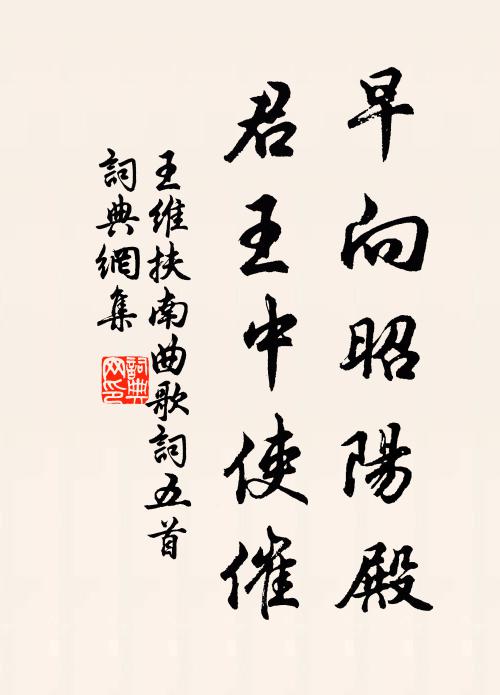 早向昭陽殿
君王中使催
王維扶南曲歌詞五首
詞典網集
詞典网印